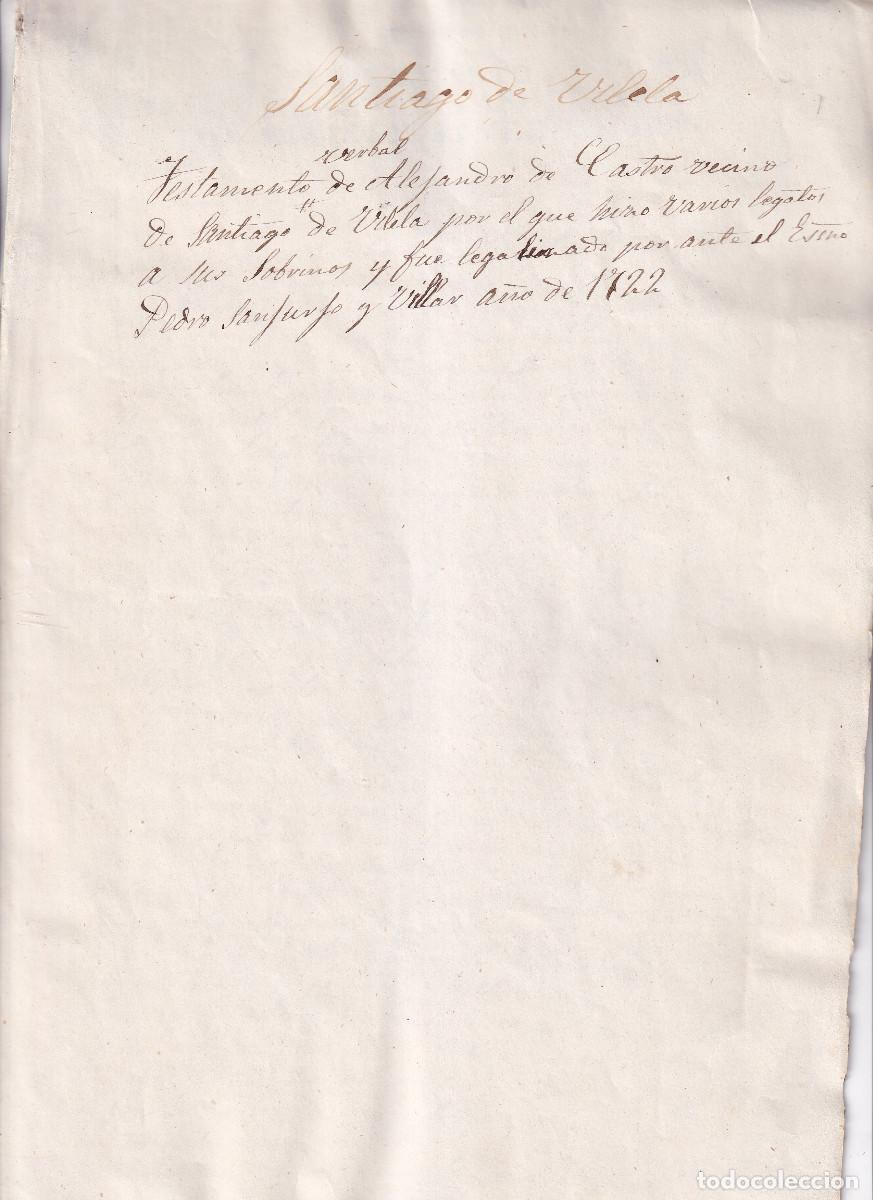 Santiago de Vilela
verbal
Testamento de Alejandro de Castro vecino
de Santiago # de Vilela por el que hizo varios legatos
a sus Sobrinos y fue legalizado por ante el Essno
Pedro Sanjurjo y Villar año de 1722
todocoleccion